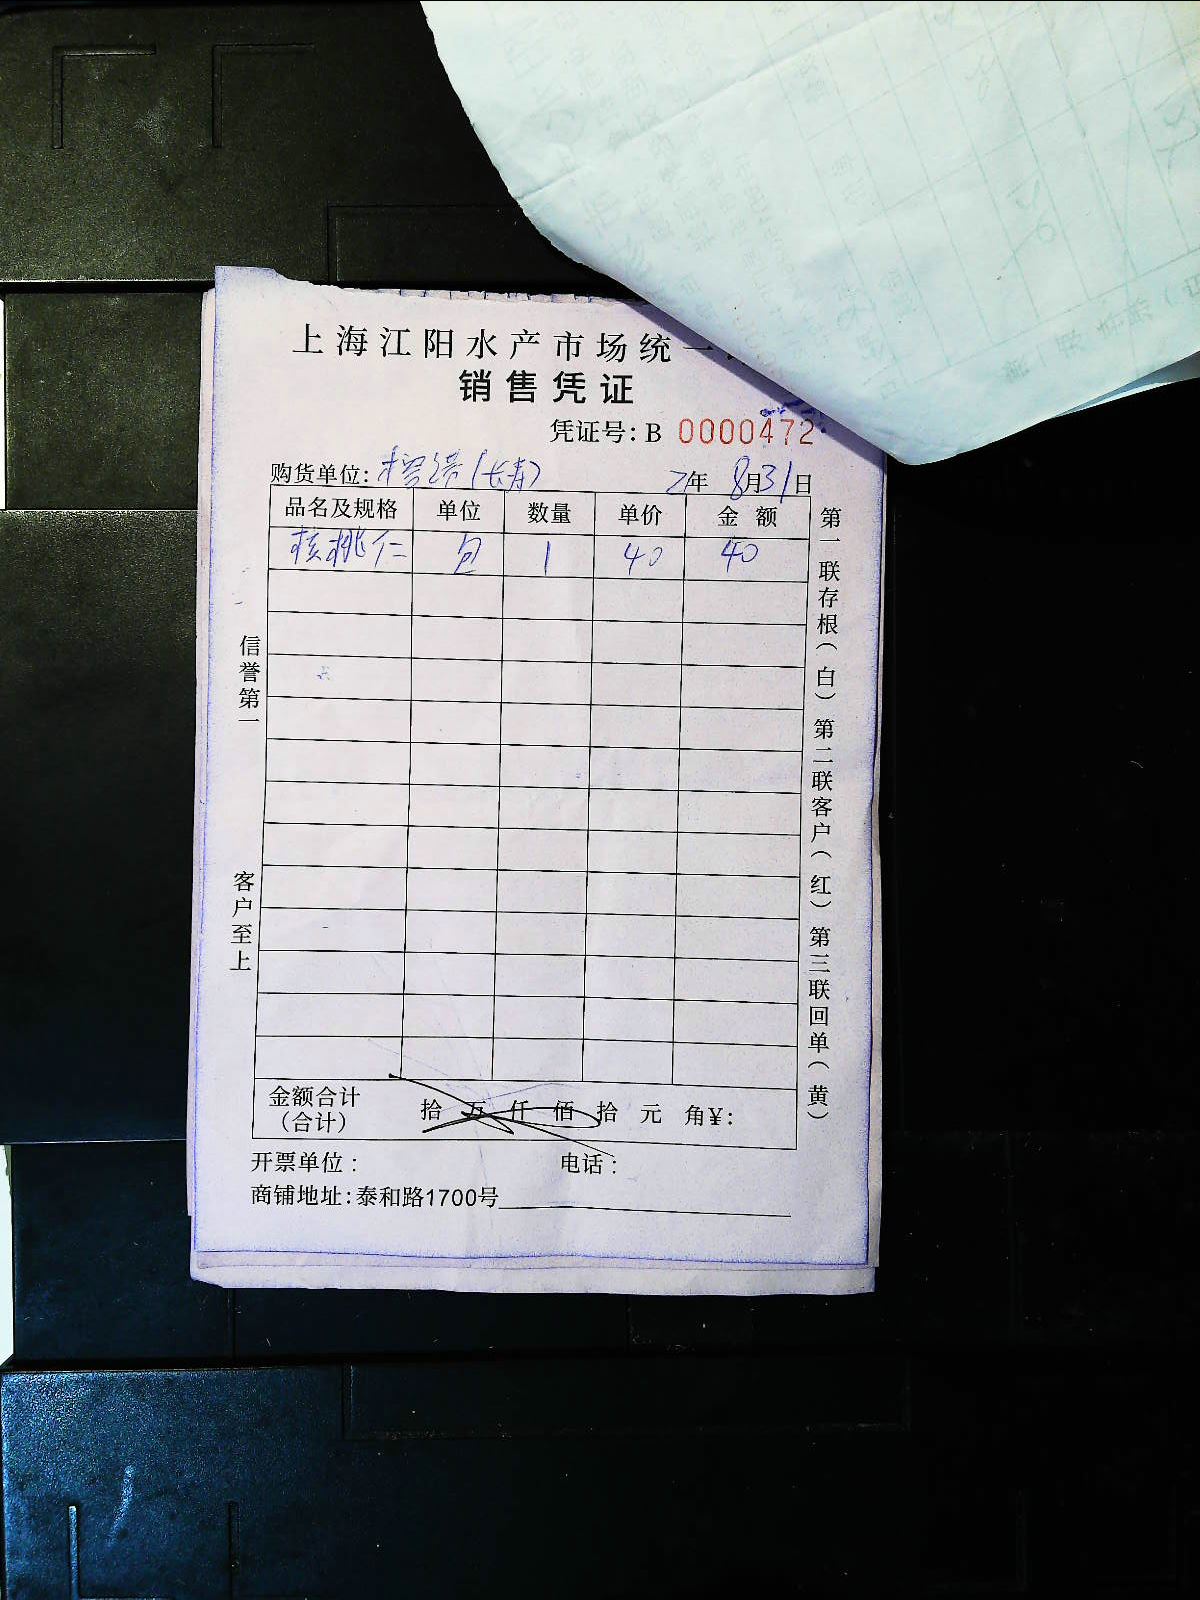 上海江阳水产市场统一
销售凭证
凭证号: B 0000472
购货单位: (长寿) 2年 8月31日
品名及规格 单位 数量 单价 金额
核桃仁 包 1 40 40
金额合计 (合计) 拾 万 仟 佰 拾 元 角¥:
开票单位: 电话:
商铺地址: 泰和路1700号
信誉第一 客户至上
第一联存根(白) 第二联客户(红) 第三联回单(黄)